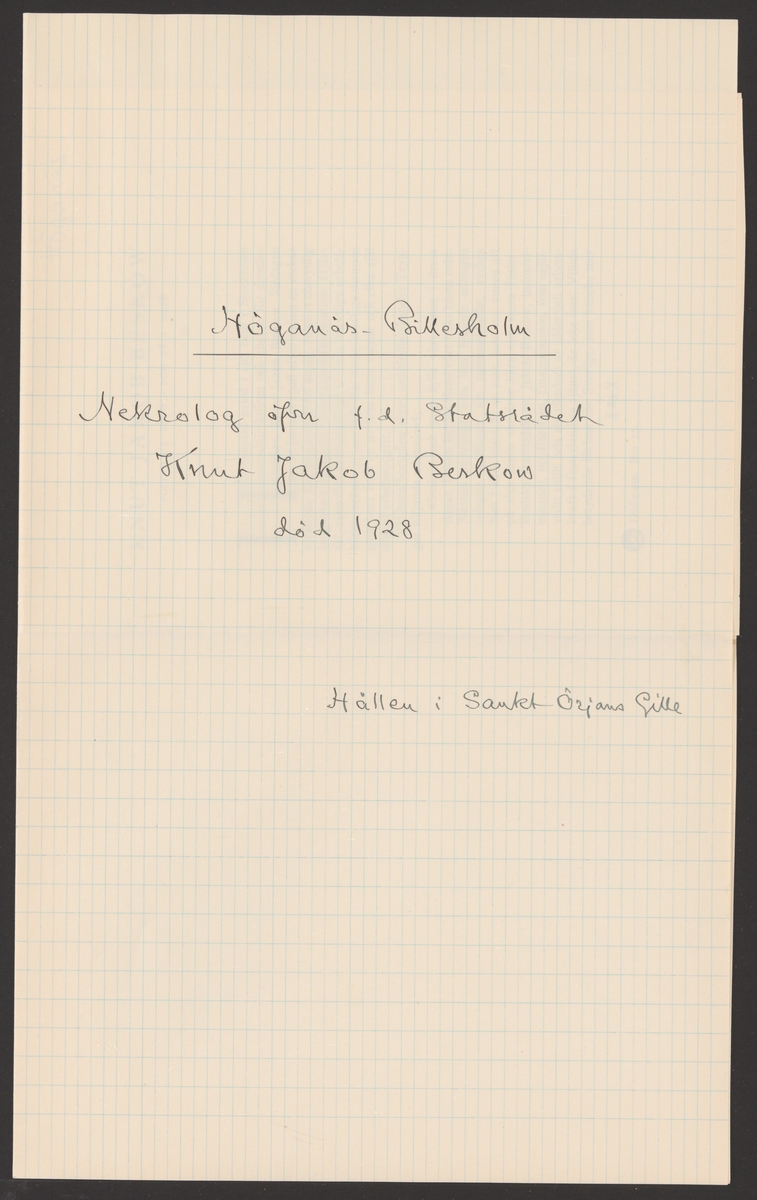 Höganäs-Billesholm
Nekrolog öfver f.d. Statsrådet
Knut Jakob Beskow
död 1928
Hållen i Sankt Örjans Gille